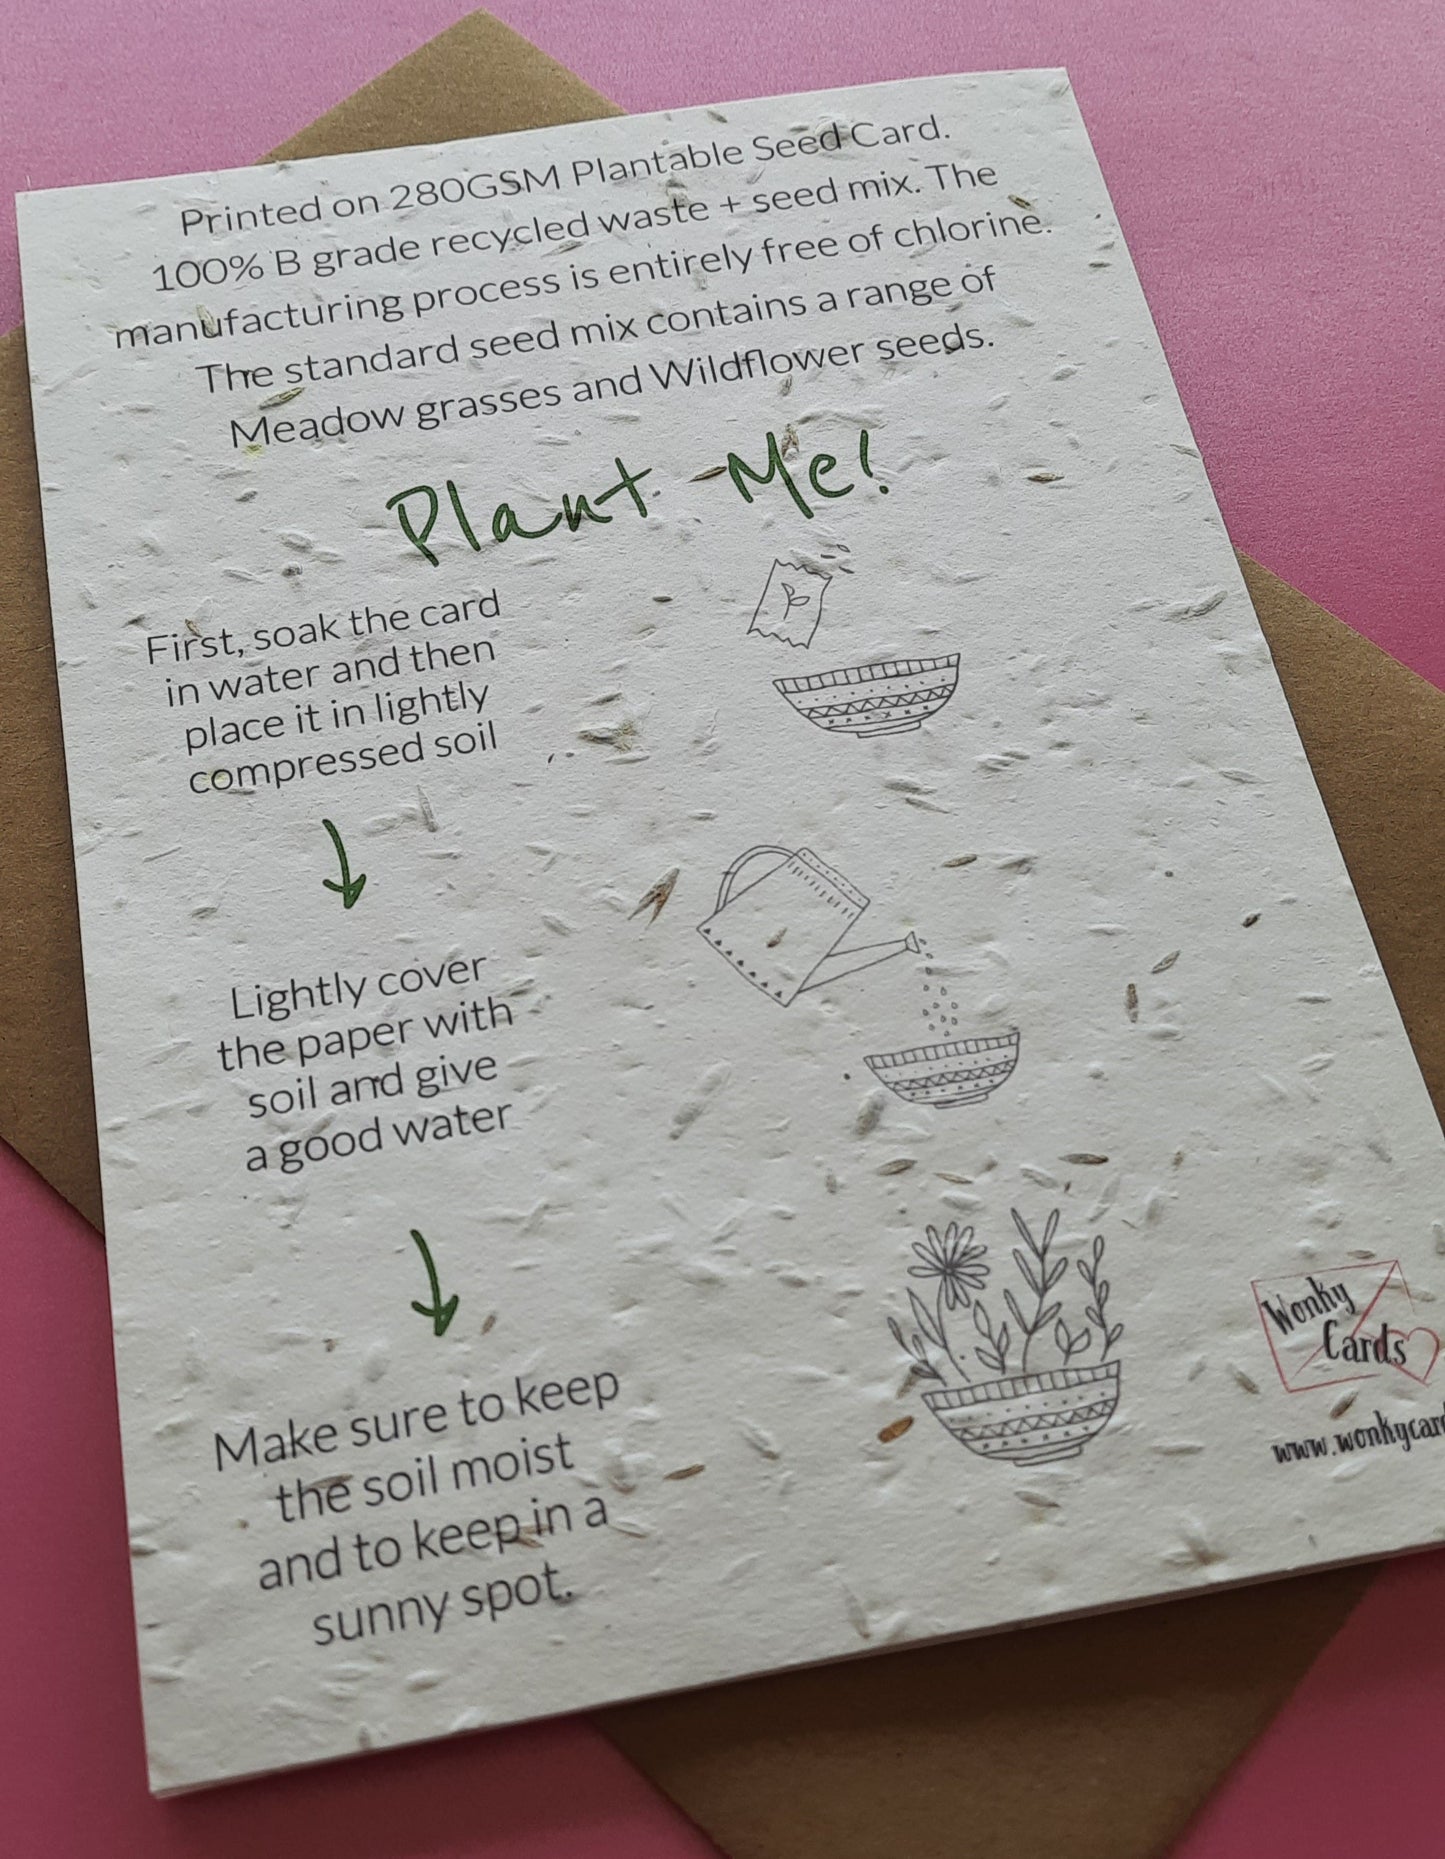 Printed on 280GSM Plantable Seed Card.
100% B grade recycled waste + seed mix. The
manufacturing process is entirely free of chlorine.
The standard seed mix contains a range of
Meadow grasses and Wildflower seeds.
Plant Me!
First, soak the card
in water and then
place it in lightly
compressed soil
Lightly cover
the paper with
soil and give
a good water
Make sure to keep
the soil moist
and to keep in a
sunny spot.
Wonky
Cards